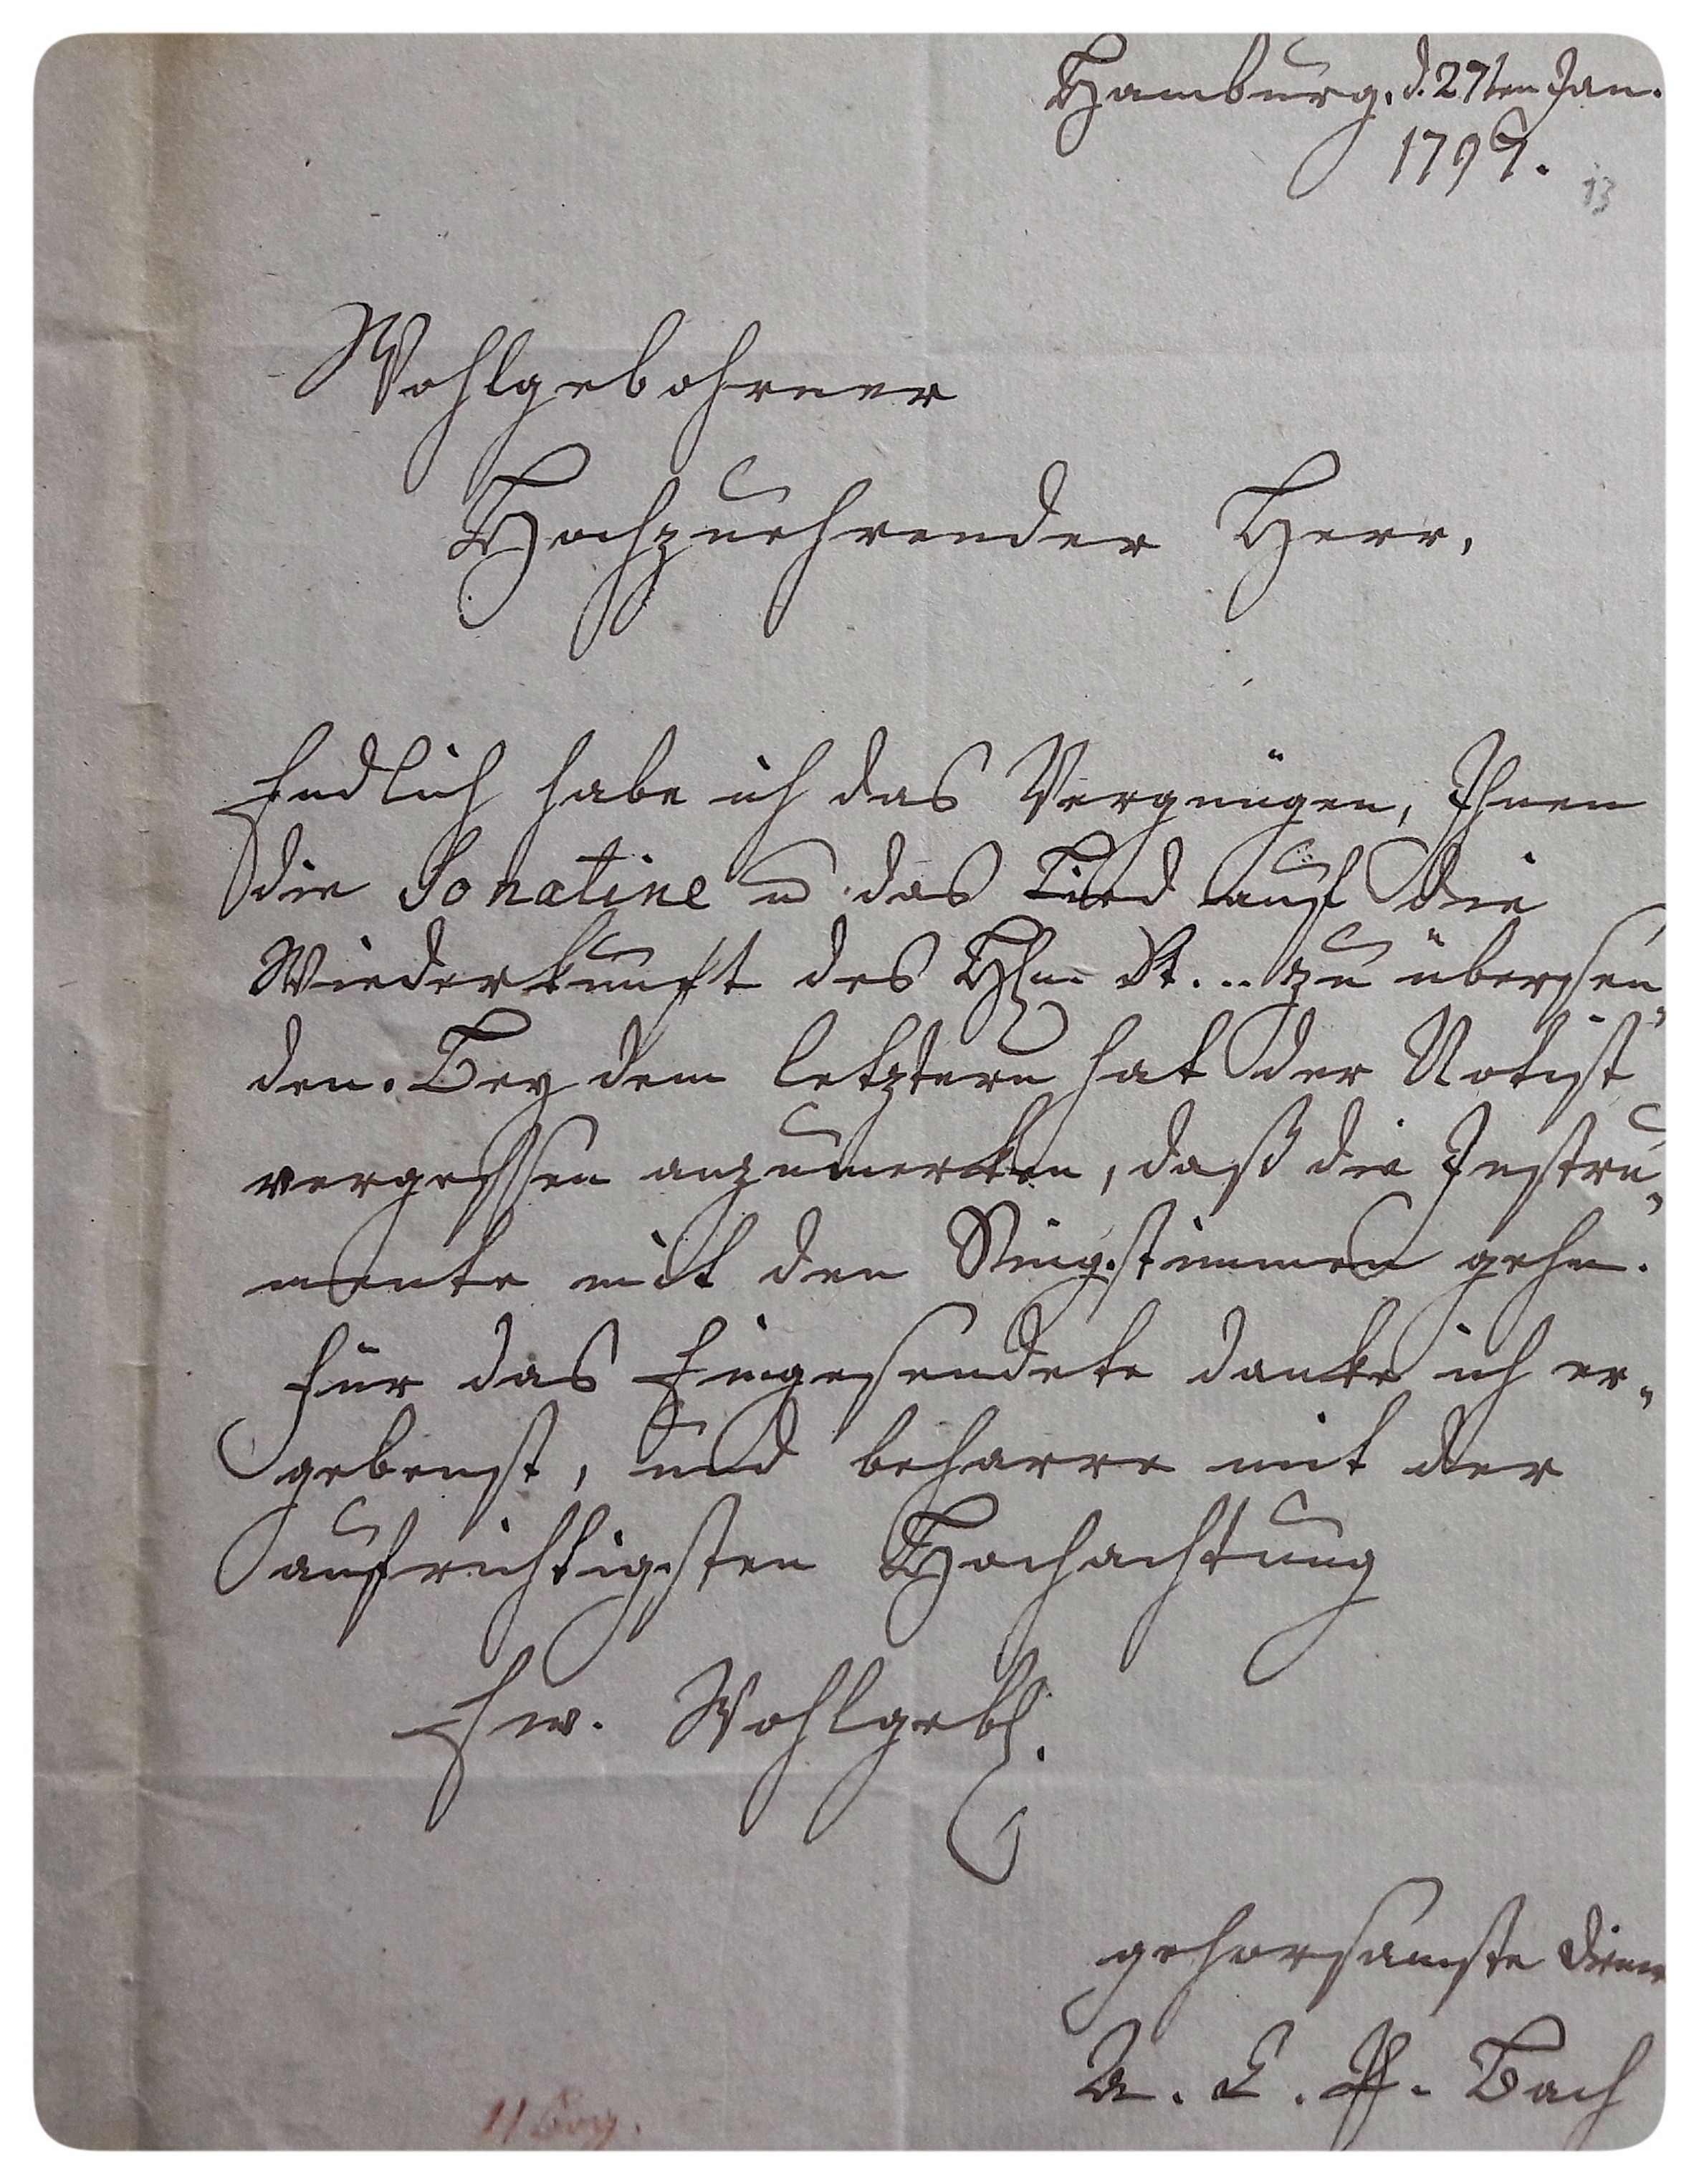 Hamburg, d. 27ten Jan.
1797.
13
Wohlgebohrner
Hochzuehrender Herr,
Endlich habe ich das Vergnügen, Ihnen
die Sonatine u. das Lied auf die
Wiederkunft des Hhn. St... zu übersen„
den. Bey dem letztern hat der Notist
vergessen anzumerken, daß die Instru„
mente mit den Singstimmen gehn.
Für das Eingesendete danke ich er„
gebenst, und beharre mit der
aufrichtigsten Hochachtung
Ew. Wohlgebh.
gehorsamste Diener
A. C. P. Bach